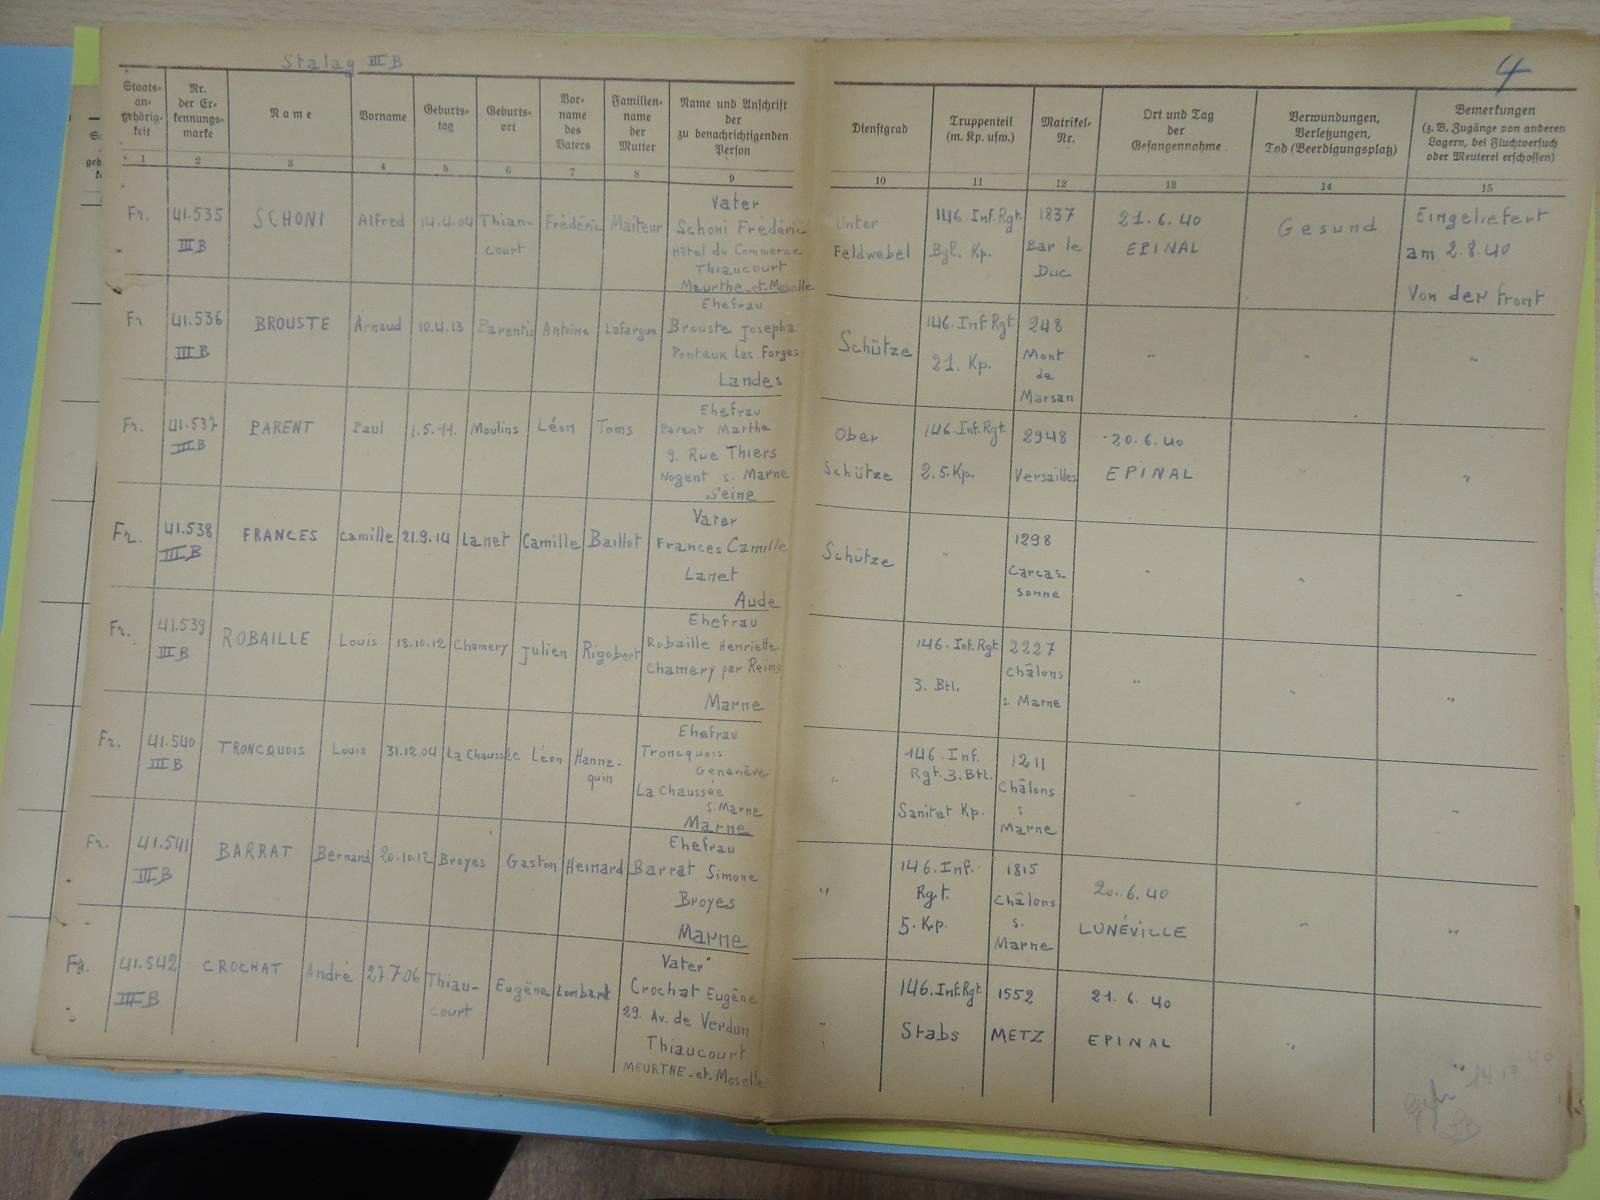 Stalag III B
4
Staats-
an-
gehörig-
keit
Nr.
der Er-
kennungs-
marke
Name
Vorname
Geburts-
tag
Geburts-
ort
Vor-
name
des
Vaters
Familien-
name
der
Mutter
Name und Anschrift
der
zu benachrichtigenden
Person
Dienstgrad
Truppenteil
(m. Kp. usw.)
Matrikel-
Nr.
Ort und Tag
der
Gefangennahme
Verwundungen,
Verletzungen,
Tod (Beerdigungsplatz)
Bemerkungen
(z. B. Zugänge von anderen
Lagern, bei Fluchtversuch
oder Meuterei erschossen)
1 2 3 4 5 6 7 8 9 10 11 12 13 14 15
Fr.
41.535
III B
SCHONI
Alfred
14.4.04
Thiau-
court
Frédéric
Maiteur
Vater
Schoni Frédéric
Hôtel du Commerce
Thiaucourt
Meurthe-et-Moselle
Unter
Feldwebel
146. Inf. Rgt.
Bgl. Kp.
1837
Bar le
Duc
21.6.40
EPINAL
Gesund
Eingeliefert
am 2.8.40
Von der Front
Fr.
41.536
III B
BROUSTE
Arnaud
10.4.13
Parentis
Antoine
Lafargue
Ehefrau
Brouste Josepha
Ponteux Les Forges
Landes
Schütze
146. Inf. Rgt.
21. Kp.
248
Mont
de
Marsan
"
"
"
Fr.
41.537
III B
PARENT
Paul
1.5.11.
Moulins
Léon
Toms
Ehefrau
Parent Marthe
9. Rue Thiers
Nogent s. Marne
Seine
Ober
Schütze
146. Inf. Rgt.
2.5. Kp.
2948
Versailles
20.6.40
EPINAL
"
"
Fr.
41.538
III B
FRANCES
Camille
21.9.14
Lanet
Camille
Baillot
Vater
Frances Camille
Lanet
Aude
Schütze
"
1298
Carcas-
sonne
"
"
"
Fr.
41.539
III B
ROBAILLE
Louis
18.10.12
Chamery
Julien
Rigobert
Ehefrau
Robaille Henriette
Chamery par Reims
Marne
"
146. Inf. Rgt.
3. Btl.
2227
Châlons
s. Marne
"
"
"
Fr.
41.540
III B
TRONCQUOIS
Louis
31.12.04
La Chaussée
Léon
Hanne-
quin
Ehefrau
Troncquois
Geneviève
La Chaussée
s. Marne
Marne
"
146. Inf.
Rgt. 3. Btl.
Sanitat Kp.
1211
Châlons
s
Marne
"
"
"
Fr.
41.541
III B
BARRAT
Bernard
20.10.12
Broyes
Gaston
Heimard
Ehefrau
Barrat Simone
Broyes
Marne
"
146. Inf.
Rgt.
5. Kp.
1815
Châlons
s.
Marne
20.6.40
LUNÉVILLE
"
"
Fr.
41.542
III B
CROCHAT
André
27.7.06
Thiau-
court
Eugène
Lombard
Vater
Crochat Eugène
29. Av. de Verdun
Thiaucourt
MEURTHE-et-Moselle
"
146. Inf. Rgt.
Stabs
1552
METZ
21.6.40
EPINAL
"
"
14.10.40